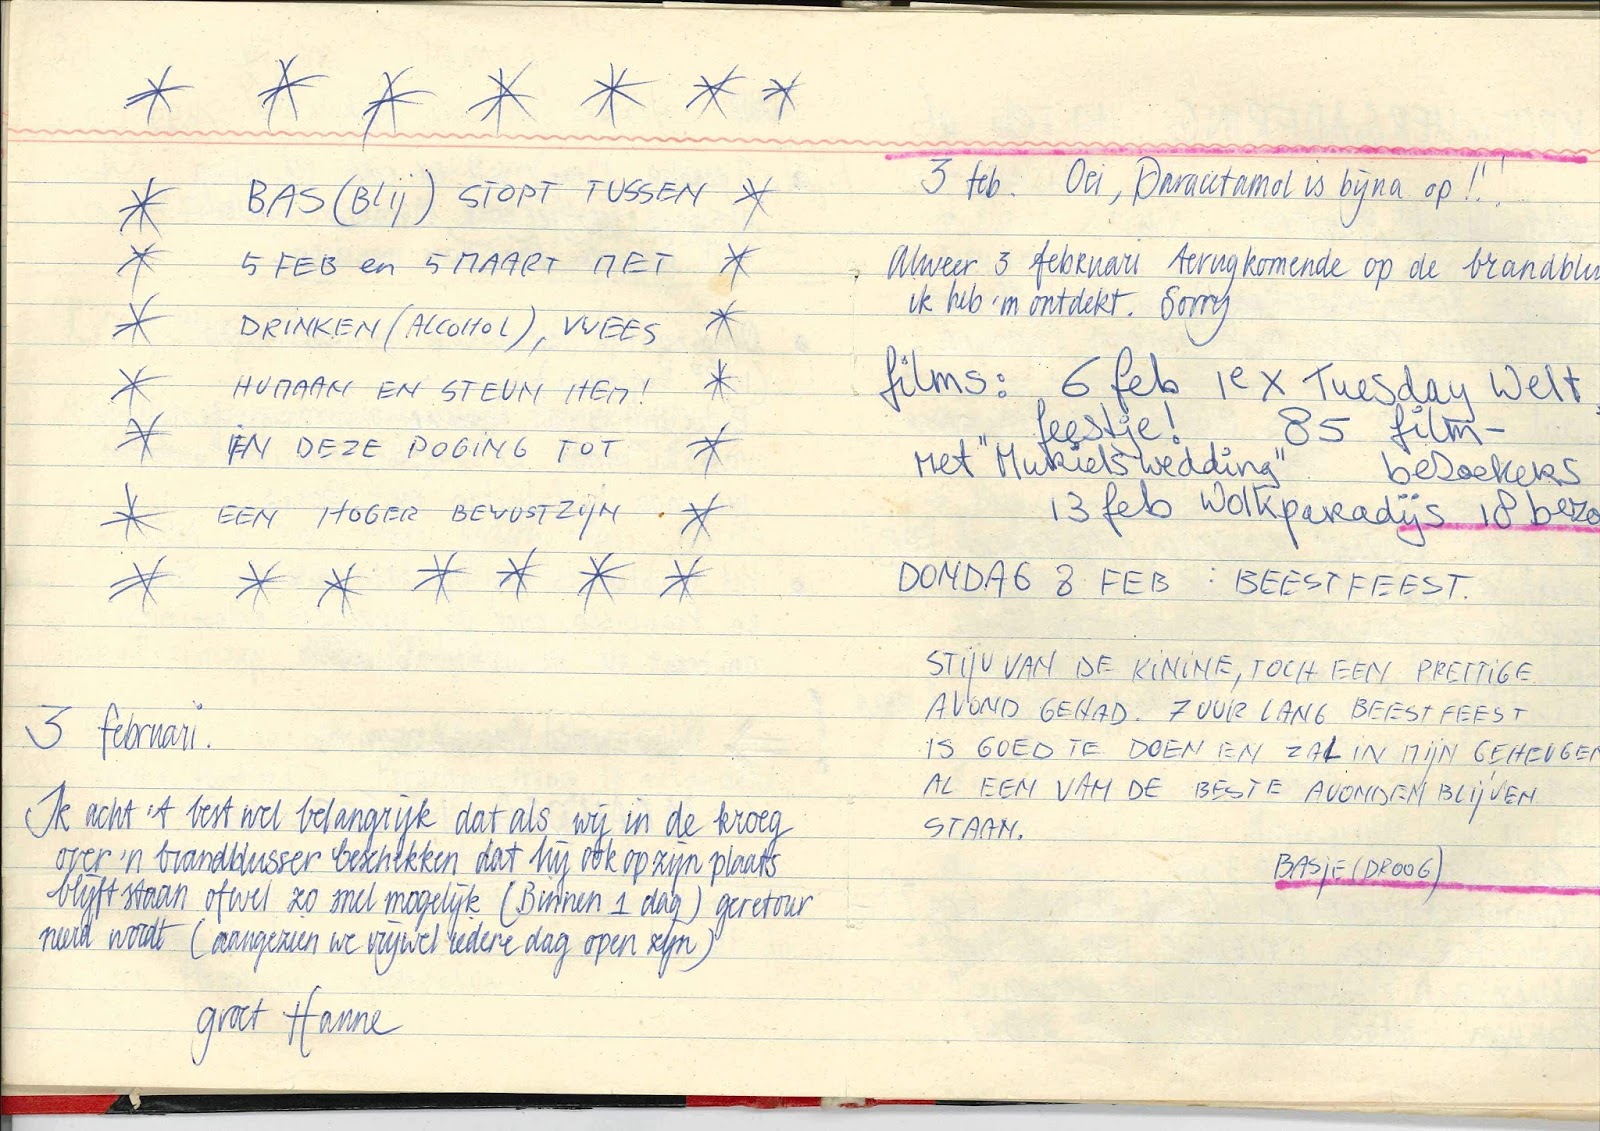 BAS (Blij) STOPT TUSSEN
5 FEB en 5 MAART MET
DRINKEN (Alcohol), WEES
HUMAAN EN STEUN HEM!
IN DEZE POGING TOT
EEN HOGER BEWUSTZIJN
3 februari.
Ik acht 't best wel belangrijk dat als wij in de kroeg
over 'n brandblusser beschikken dat hij ook op zijn plaats
blijft staan ofwel zo snel mogelijk (Binnen 1 dag) geretour
neerd wordt (aangezien we vrijwel iedere dag open zijn)
groet Hanne
3 feb. Oei, Paracetamol is bijna op!!!
Alweer 3 februari terugkomende op de brandblu
ik heb 'm ontdekt. Sorry
films: 6 feb 1e x Tuesday Welt
feestje! 85 film-
met "Muriels wedding" bezoekers
13 feb Wolkparadijs 18 bezo
DONDAG 8 FEB : BEESTFEEST.
STIJV VAN DE KININE, TOCH EEN PRETTIGE
AVOND GEHAD. 7 UUR LANG BEESTFEEST
IS GOED TE DOEN EN ZAL IN MIJN GEHEUGEN
AL EEN VAN DE BESTE AVONDEN BLIJVEN
STAAN.
BASJE (DROOG)